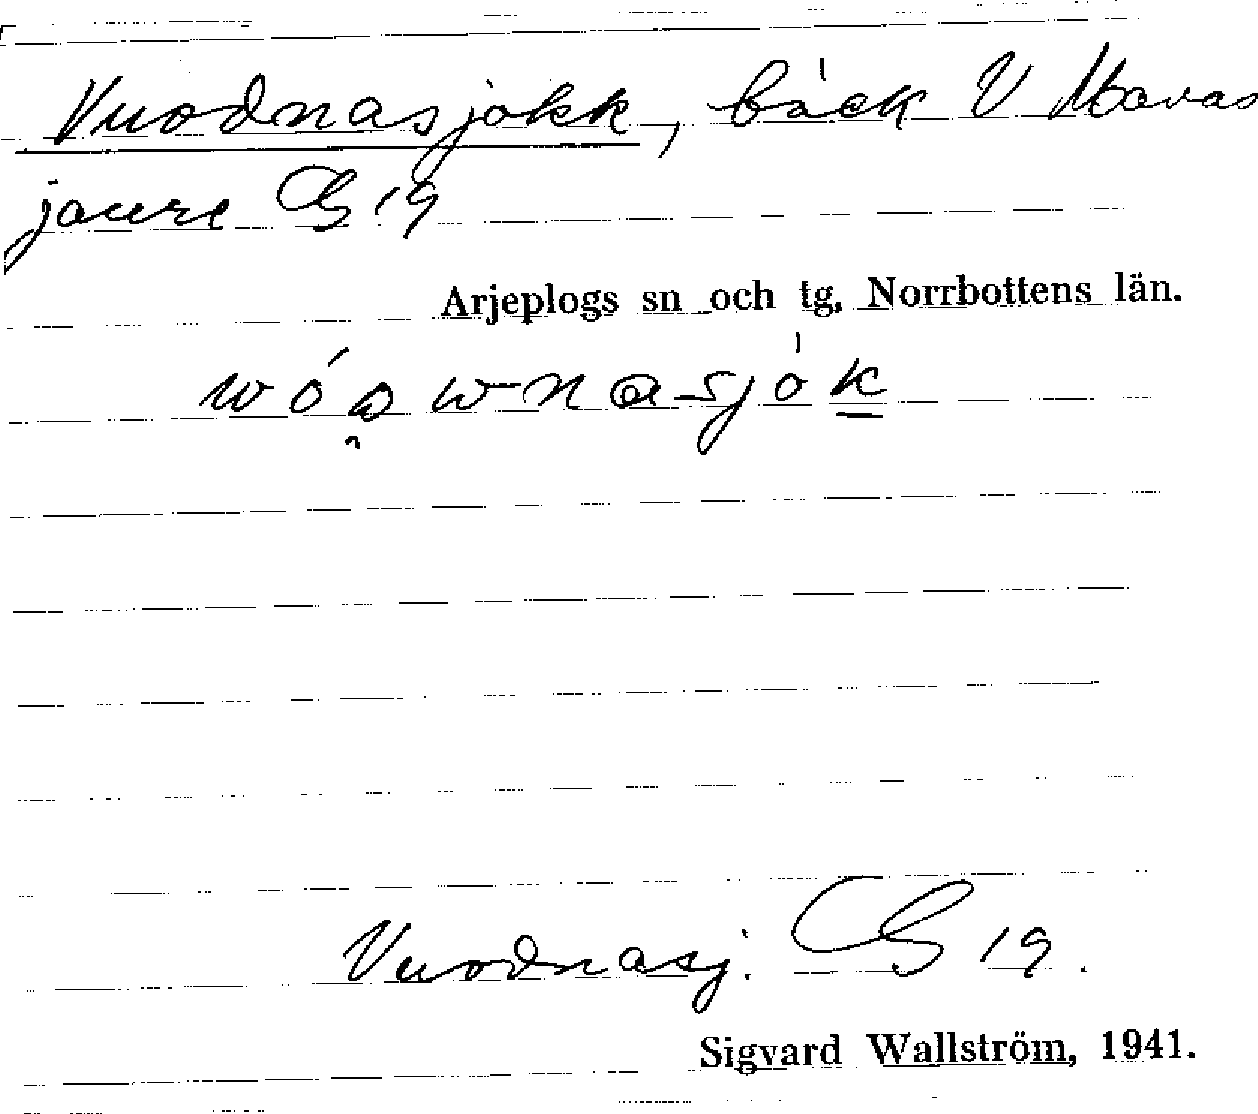 Vuodnasjokk, bäck V Mavas
jaure G 19
Arjeplogs sn och tg. Norrbottens län.
Vuodnasj. G 19.
Sigvard Wallström, 1941.